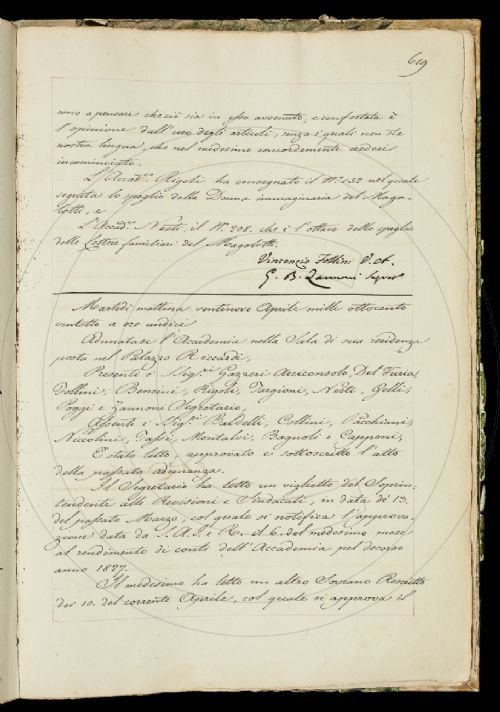 619
sono a pensare che ciò sia in esso avvenuto, e confortata è
l'opinione dall'uso degli articoli, senza i quali non sta
nostra lingua, che nel medesimo concordemente vedesi
incominciato.
L'Accad.º Rigoli ha consegnato il N.º 132 nel quale
seguita lo spoglio della Donna immaginaria del Maga-
lotti, e
L'Accad.º Nesti il N.º 208. che è l'ottavo dello spoglio
delle Lettere familiari del Magalotti.
Vincenzio Follini V. A.
G. B. Zannoni Segret.º
Martedì mattina ventinove Aprile mille ottocento
ventotto a ore undici
Adunatasi l'Accademia nella Sala di sua residenza
posta nel Palazzo Riccardi,
Presenti i Sig.ri Gazzeri Arciconsolo, Del Furia,
Follini, Bencini, Rigoli, Targioni, Nesti, Gelli,
Poggi e Zannoni Segretario,
Assenti i Sig.ri Baldelli, Collini, Pacchiani,
Niccolini, Tassi, Montalvi, Bagnoli e Capponi,
È stato letto approvato e sottoscritto l'atto
della passata adunanza.
Il Segretario ha letto un viglietto del Soprin-
tendente alle Revisioni e Sindacati, in data de' 13.
del passato Marzo, col quale si notifica l'approva-
zione data da S. A. I. e R. il 6. del medesimo mese
al rendimento di conti dell'Accademia pel decorso
anno 1827.
Il medesimo ha letto un altro Sovrano Rescritto
dei 10. del corrente Aprile, col quale si approva il